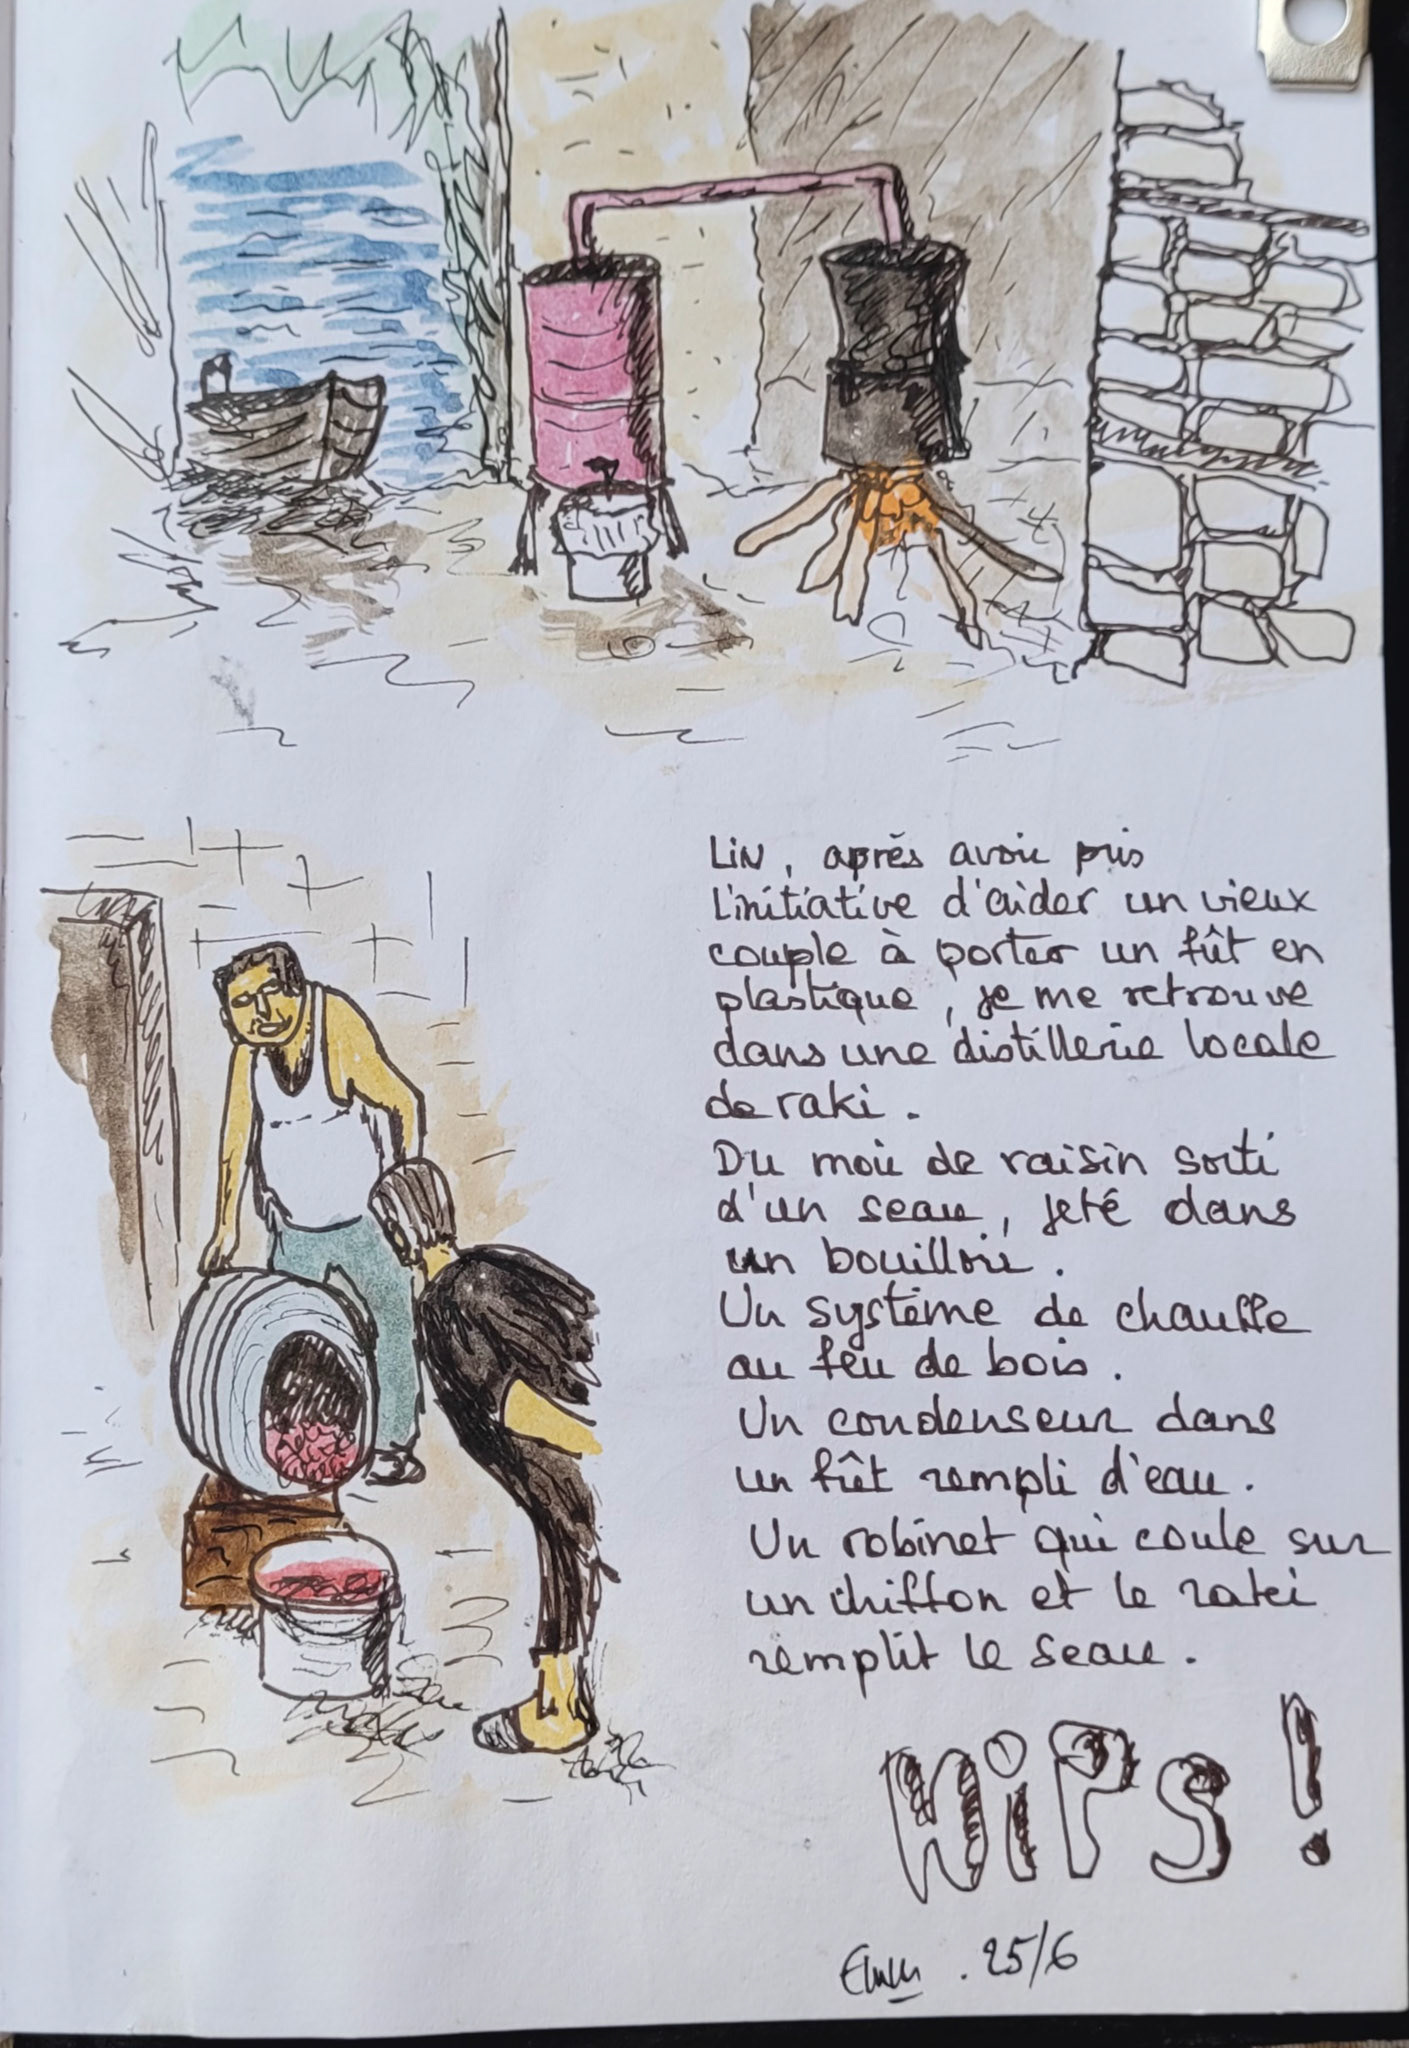 LiN, après avoir pris
l'initiative d'aider un vieux
couple à porter un fût en
plastique, je me retrouve
dans une distillerie locale
de raki.
Du moût de raisin sorti
d'un seau, jeté dans
un bouilloir.
Un système de chauffe
au feu de bois.
Un condenseur dans
un fût rempli d'eau.
Un robinet qui coule sur
un chiffon et le raki
remplit le seau.
HiPS !
25/6